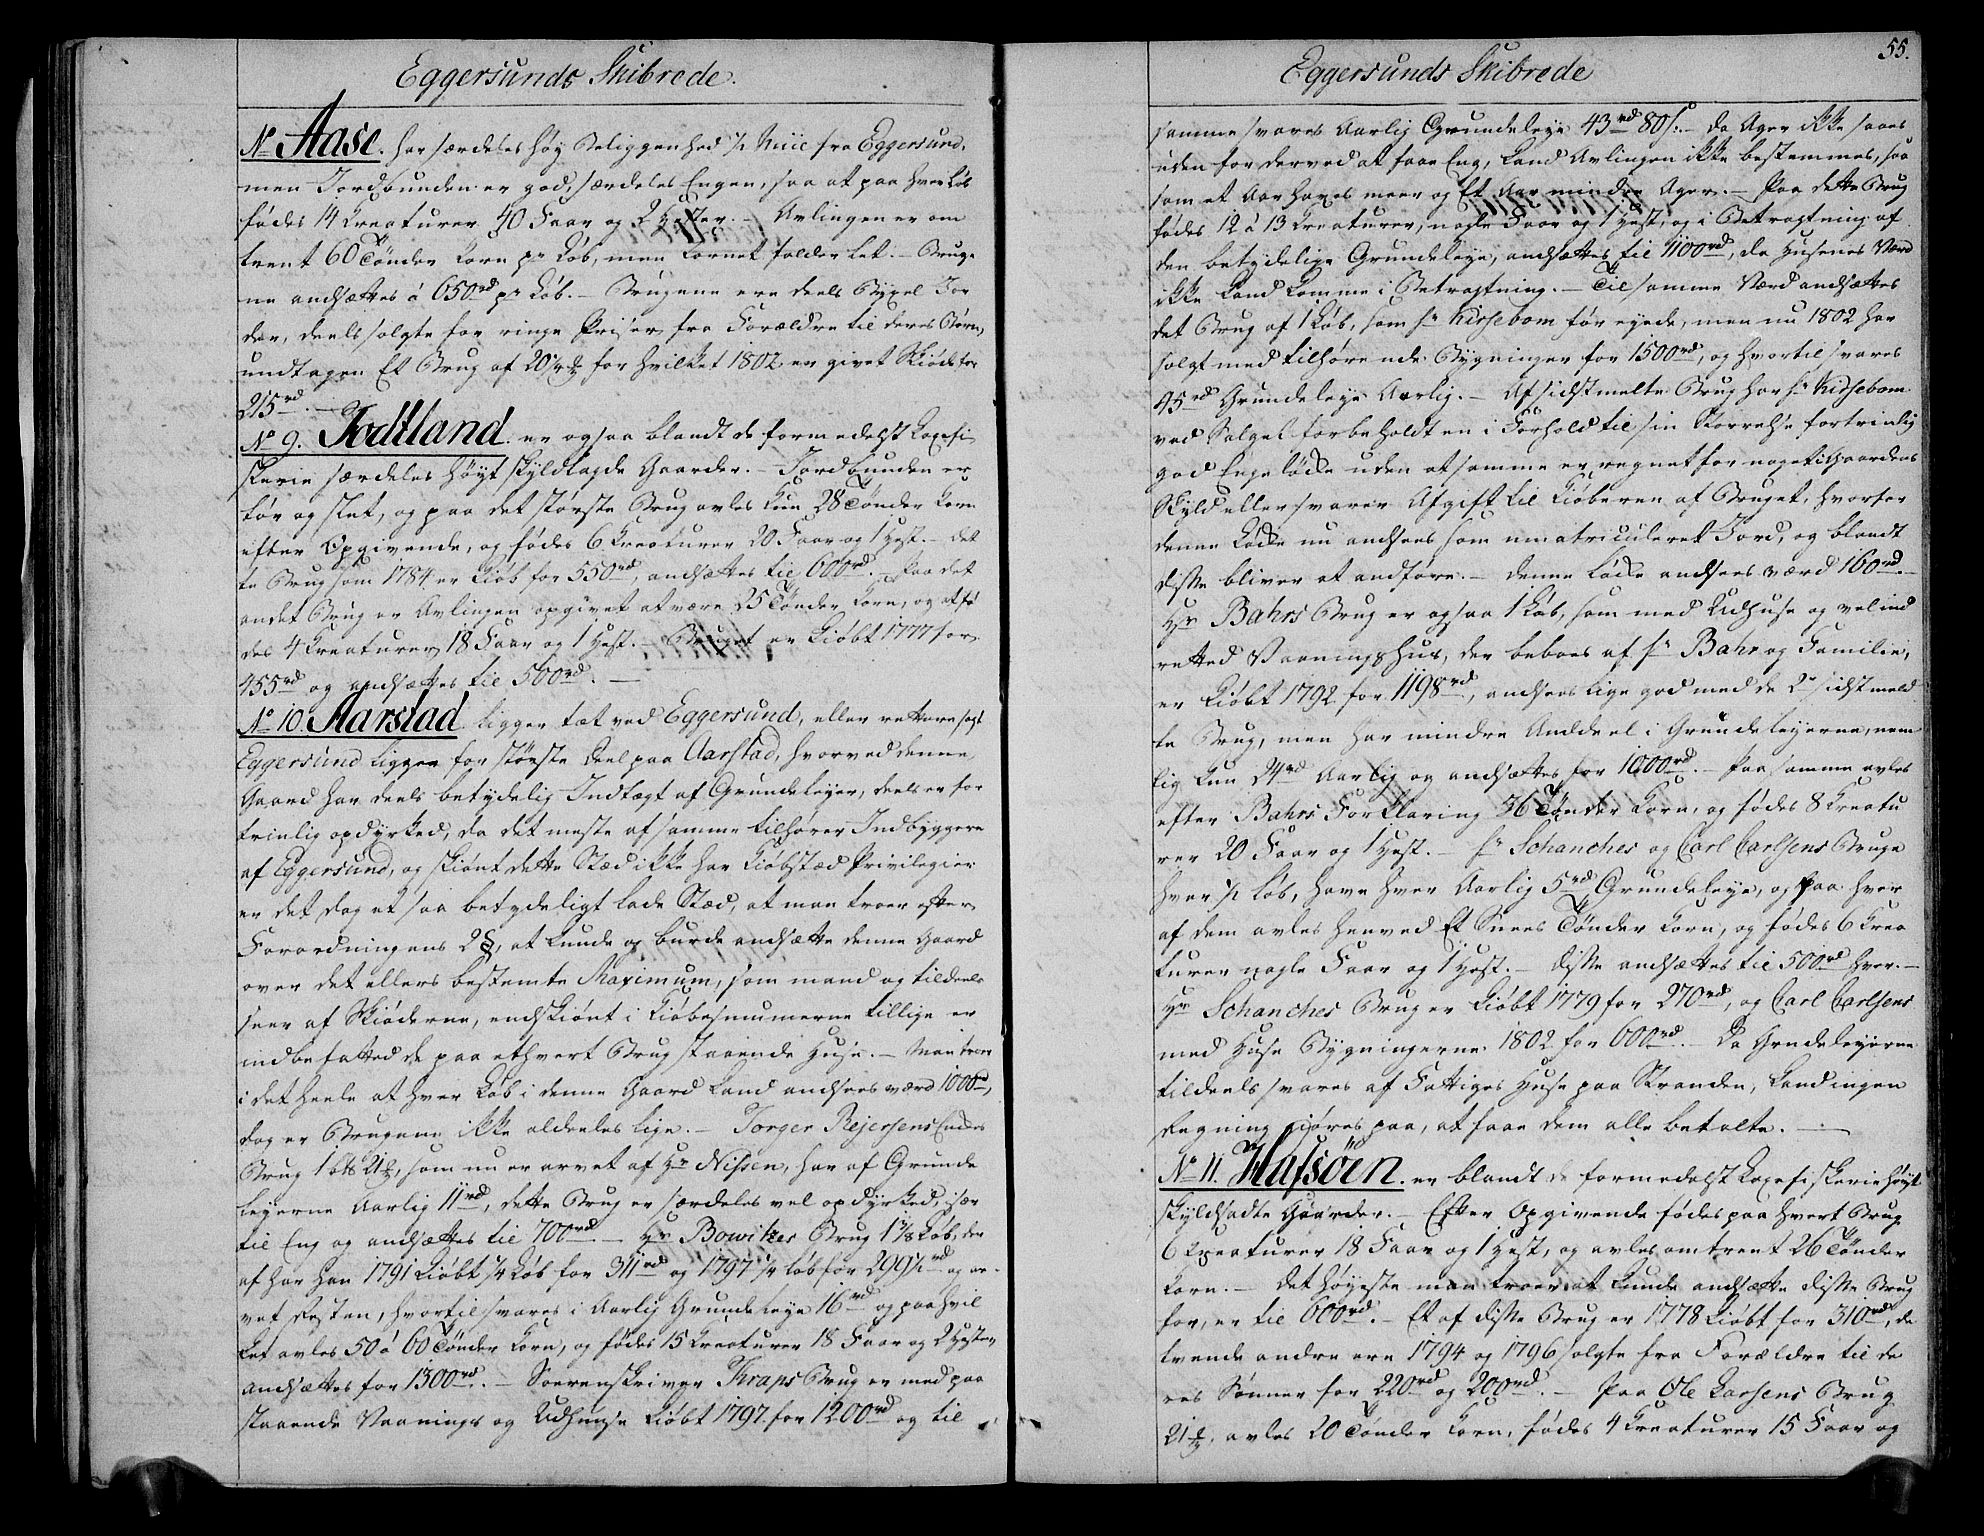 Eggersunds Skibrede.
No Aase. har særdeles høy Beliggenhed ½ Miil fra Eggersund,
men Jordbunden er god, særdeles Engen, saa at paa hver Løb
fødes 14 Kreaturer 40 Faar og 2 Hester. – Avlingen er om
trent 60 Tönder Korn pr Løb, men Kornet falder let. – Bruge
ne andsættes á 650rd pr Løb. – Brugene ere deels Bÿxel Jor
der, deels solgte for ringe Priser fra Forældre til deres Børn,
undtagen Et Brug af 20¼ for hvilket 1802 er givet Skiöde for
215rd. –
No 9. Jodtland. er ogsaa blandt de formedelst Laxefi
skerie særdeles høÿt skÿldlagde Gaarder. – Jordbunden er
tør og slet, og paa det største Brug avles kun 28 Tönder Korn
efter Opgivende, og fødes 6 Kreaturer 20 Faar og 1 Hest. – Det
te Brug som 1784 er kiøb for 550rd, andsættes til 600rd. – Paa det
andet Brug er Avlingen opgivet at være 25 Tönder Korn, og at fø
des 4 Kreaturer 18 Faar og 1 Hest. – Bruget er kiøbt 1777 for
455rd og andsættes til 500rd. –
No 10. Aarstad. ligger tæt ved Eggersund, eller rettere sagt
Eggersund ligger for største Deel paa Aarstad, hvorved denne
Gaard har deels betydelig Indtægt af Grundeleyer, deels er for
trinlig opdÿrked, da det meste af samme tilhører Indbyggere
af Eggersund, og skiønt dette Stæd ikke har Kiøbstæd Privilegier
er det dog et saa betydeligt Lade Stæd, at man troer efter
Forordningens 2 §, at kunde og burde andsætte denne Gaard
over det ellers bestemte Maximum, som mand og tildeels
seer af Skiöderne, endskiønt i Kiøbesummerne tillige er
indbefattede de paa ethvert Brug staaende Huse. – Man troer
i det heele at hver Løb i denne Gaard kand andsees værd 1000rd,
dog er Brugene ikke aldeeles lige. – Torger Rejersens Enkes
Brug 1 21, som nu er arvet af Hr Nissen, har af Grunde
leyerne Aarlig 11rd, dette Brug er særdeles vel opdÿrked, især
til Eng og andsættes til 700rd. – Hr Bowitzes Brug 1 Løb, der
af har han 1791 kiøbt ¼ Løb for 311rd og 1797 ¼ Løb for 299½rd og ar-
vet Resten, hvortil svares i Aarlig Grundeleye 16rd og paa hvil
ket avles 50 á 60 Tönder Korn, og fødes 15 Kreaturer 18 Faar og 2 Hester
andsættes for 1300rd. – Sorenskriver Thraps Brug er med paa
staaende Vaanings og Udhuuse kiøbt 1797 for 1200rd og til
55.
Eggersunds Skibrede
samme svares Aarlig Grundeleye 43rd 80 s. – Da Ager ikke saaes
uden for derved at faae Eng, kand Avlingen ikke bestemmes, saa
som et Aar haves meer og Et Aar mindre Ager. – Paa dette Brug
fødes 12 á 13 Kreaturer, nogle Faar og 1 Hest, og i Betragtning af
den betydelige Grundeleye, andsættes til 1100rd, da Husenes Værd
ikke kand komme i Betragtning. – Til samme Værd andsættes
det Brug af 1 Løb, som Sr Kirsebom før eyede, men nu 1802 har
solgt med tilhørende Bygninger for 1500rd, og hvortil svares
45rd Grundeleye Aarlig. – Af sidstmelte Brug har Sr Kirsebom
ved Salget forbeholdt en i Forhold til sin Størrelse fortrinlig
god Engeløcke uden at samme er regnet for noget i Gaardens
Skÿld eller svarer Afgift til Kiøberen af Bruget, hvorfor
denne Løcke nu andsees som umatriculeret Jord, og blandt
disse bliver at andføre. – Denne Løcke andsees værd 160rd. –
Hr Bahrs Brug er ogsaa 1 Løb, som med Udhuse og vel ind
retted Vaaningshus, der beboes af Sr Bahr og Familie,
er kiøbt 1792 for 1198rd, andsees lige god med de 2de sidst meld
te Brug, men har mindre Anddeel i Grundeleyerne, nem
lig kun 24rd Aarlig og andsættes for 1000rd. – Paa samme avles
efter Bahrs Forklaring 56 Tönder Korn, og fødes 8 Kreatu
rer 20 Faar og 1 Hest. – Sr Schanches og Carl Carlsens Bruge
hver ½ Løb, have hver Aarlig 5rd Grundeleye, og paa hver
af dem avles henved Et Snees Tönder Korn, og fødes 6 Krea
turer nogle Faar og 1 Hest. – Disse andsættes til 500rd hver. –
Hr Schanches Brug er kiøbt 1779 for 270rd, og Carl Carlsens
med Huse Bygningerne 1802 for 600rd. – Da Grndeleyerne
tildeels svares af Fattiges Huse paa Stranden, kand ingen
Regning giøres paa, at faae dem alle betalte. –
No 11. Hafsöen. er blandt de formedelst Laxefiskerie høÿt
skÿldsadte Gaarder. – Efter Opgivende fødes paa hvert Brug
6 Kreaturer 18 Faar og 1 Hest, og avles omtrent 26 Tönder
Korn. – Det høyeste man troer at kunde andsætte disse Brug
for, er til 600rd. – Et af disse Brug er 1778 kiøbt for 310rd, de
tvende andre ere 1794 og 1796 solgte fra Forældre til de
res Sønner for 220rd og 200rd. – Paa Ole Larsens Brug
21 avles 20 Tönder Korn, fødes 4 Kreaturer 15 Faar og